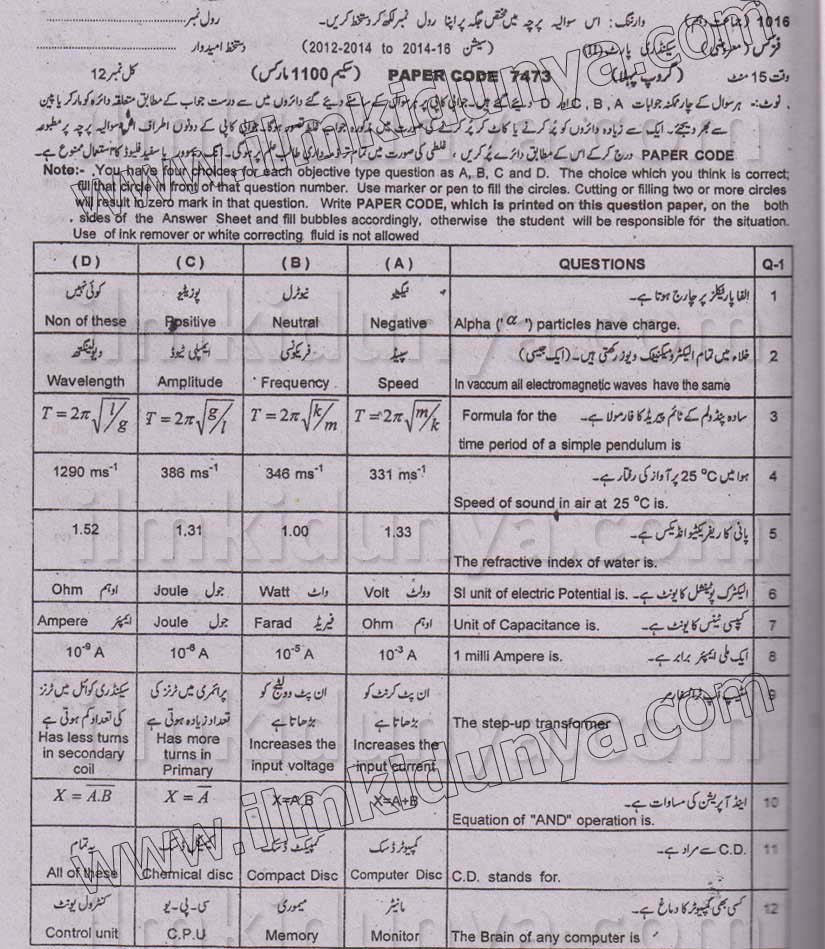 1016 (جماعت دہم) وارننگ: اس سوالیہ پرچہ میں مختص جگہ پر اپنا رول نمبر لکھ کر دستخط کریں۔ رول نمبر
فزکس (معروضی) سیکنڈری پارٹ (II) سیشن (2012-2014 to 2014-16) دستخط امیدوار
وقت 15 منٹ (گروپ پہلا) PAPER CODE 7473 (سکیم 1100 مارکس) کل نمبر 12
نوٹ:- ہر سوال کے چار ممکنہ جوابات A, B, C اور D دیئے گئے ہیں۔ جوابی کاپی پر ہر سوال کے سامنے دیئے گئے دائروں میں سے درست جواب کے مطابق متعلقہ دائرہ کو مارکر یا پین
سے بھر دیجئے۔ ایک سے زیادہ دائروں کو پُر کرنے یا کاٹ کر پُر کرنے کی صورت میں مذکورہ جواب غلط تصور ہوگا۔ جوابی کاپی کے دونوں اطراف اس سوالیہ پرچہ پر مطبوعہ
PAPER CODE درج کر کے اس کے مطابق دائرے پُر کریں، غلطی کی صورت میں تمام تر ذمہ داری طالب علم پر ہوگی۔ انک ریموور یا سفید فلیوڈ کا استعمال ممنوع ہے۔
Note:- .You have four choices for each objective type question as A, B, C and D. The choice which you think is correct;
fill that circle in front of that question number. Use marker or pen to fill the circles. Cutting or filling two or more circles
will result in zero mark in that question. Write PAPER CODE, which is printed on this question paper, on the both
sides of the Answer Sheet and fill bubbles accordingly, otherwise the student will be responsible for the situation.
Use of ink remover or white correcting fluid is not allowed
( D ) ( C ) ( B ) ( A ) QUESTIONS Q-1
کوئی نہیں پوزیٹیو نیوٹرل نیگیٹو الفا پارٹیکلز پر چارج ہوتا ہے۔ 1
Non of these Positive Neutral Negative Alpha ("α") particles have charge.
ویولینگتھ ایمپلی ٹیوڈ فریکوئنسی سپیڈ خلاء میں تمام الیکٹرومیگنیٹک ویوز رکھتی ہیں۔ (ایک جیسی) 2
Wavelength Amplitude Frequency Speed In vaccum all electromagnetic waves have the same
T = 2π√(l/g) T = 2π√(g/l) T = 2π√(k/m) T = 2π√(m/k) Formula for the سادہ پنڈولم کے ٹائم پیریڈ کا فارمولا ہے۔ 3
time period of a simple pendulum is
1290 ms⁻¹ 386 ms⁻¹ 346 ms⁻¹ 331 ms⁻¹ ہوا میں 25 °C پر آواز کی رفتار ہے۔ 4
Speed of sound in air at 25 °C is.
1.52 1.31 1.00 1.33 پانی کا ریفریکٹیو انڈیکس ہے۔ 5
The refractive index of water is.
Ohm اوہم Joule جول Watt واٹ Volt وولٹ SI unit of electric Potential is. الیکٹرک پوٹینشل کا یونٹ ہے۔ 6
Ampere ایمپیئر Joule جول Farad فیرڈ Ohm اوہم Unit of Capacitance is. کپیسی ٹینس کا یونٹ ہے۔ 7
10⁻⁹ A 10⁻⁶ A 10⁻⁵ A 10⁻³ A 1 milli Ampere is. ایک ملی ایمپئر برابر ہے۔ 8
سیکنڈری کوائل میں ٹرنز پرائمری میں ٹرنز کی ان پٹ وولٹیج کو ان پٹ کرنٹ کو سٹیپ اپ ٹرانسفارمر 9
کی تعداد کم ہوتی ہے تعداد زیادہ ہوتی ہے بڑھاتا ہے بڑھاتا ہے The step-up transformer
Has less turns Has more Increases the Increases the
in secondary turns in input voltage input current
coil Primary
X = A̅.̅B̅ X = A̅ X=A.B X=A+B اینڈ آپریشن کی مساوات ہے۔ 10
Equation of "AND" operation is.
یہ تمام کیمیکل ڈسک کمپیکٹ ڈسک کمپیوٹر ڈسک C.D. سے مراد ہے۔ 11
All of these Chemical disc Compact Disc Computer Disc C.D. stands for.
کنٹرول یونٹ سی-پی-یو میموری مانیٹر کسی بھی کمپیوٹر کا دماغ ہے۔ 12
Control unit C.P.U Memory Monitor The Brain of any computer is
www.ilmkidunya.com
www.ilmkidunya.com
ilmkidunya.com
ilmkidunya.com
ilmkidunya.com
ilmkidunya.com
ilmkidunya.com